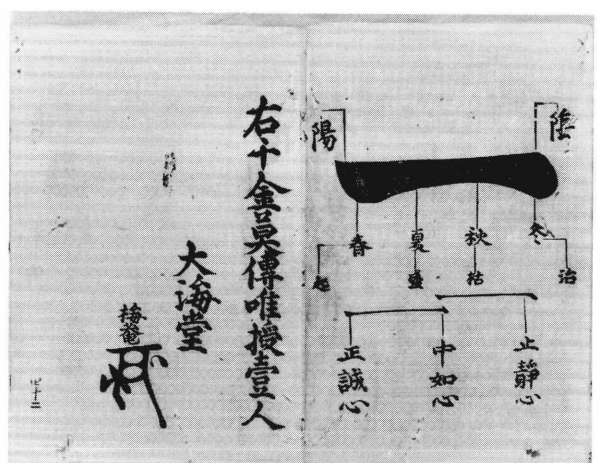 陰
陽
冬
秋
夏
春
治
枯
盛
起
止靜心
中如心
正誠心
右千金莫傳唯授壹人
大海堂
梅菴